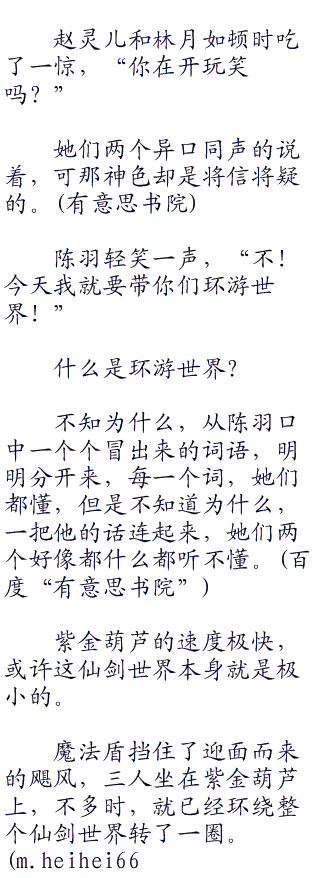 赵灵儿和林月如顿时吃
了一惊，“你在开玩笑
吗？”
她们两个异口同声的说
着，可那神色却是将信将疑
的。(有意思书院)
陈羽轻笑一声，“不！
今天我就要带你们环游世
界！”
什么是环游世界？
不知为什么，从陈羽口
中一个个冒出来的词语，明
明分开来，每一个词，她们
都懂，但是不知道为什么，
一把他的话连起来，她们两
个好像都什么都听不懂。(百
度“有意思书院”)
紫金葫芦的速度极快，
或许这仙剑世界本身就是极
小的。
魔法盾挡住了迎面而来
的飓风，三人坐在紫金葫芦
上，不多时，就已经环绕整
个仙剑世界转了一圈。
(m.heihei66